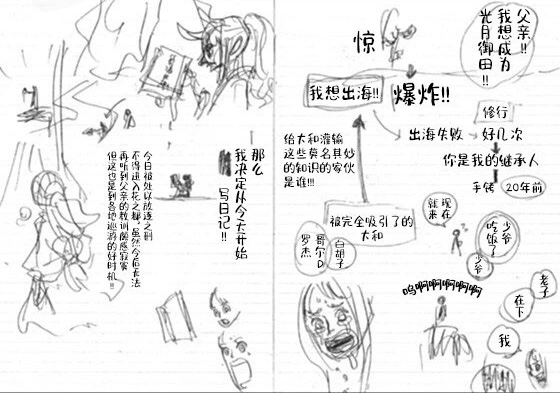 父亲!!
我想成为
光月御田!!
惊
爆炸!!
我想出海!!
修行
出海失败
好几次
你是我的继承人
手铐
20年前
给大和灌输
这些莫名其妙
的知识的家伙
是谁!!!
被完全吸引了的
大和
白胡子
哥尔D
罗杰
现在
就来
少爷
吃饭了
少爷
呜啊啊啊啊啊啊
老子
在下
我
——那么
我决定从今天开始
写日记!!
今日被处以放逐之刑
不得进入花之都,虽然今后无法
再听到父亲的教训颇感寂寞
但这也是到各地巡游的好时机!!